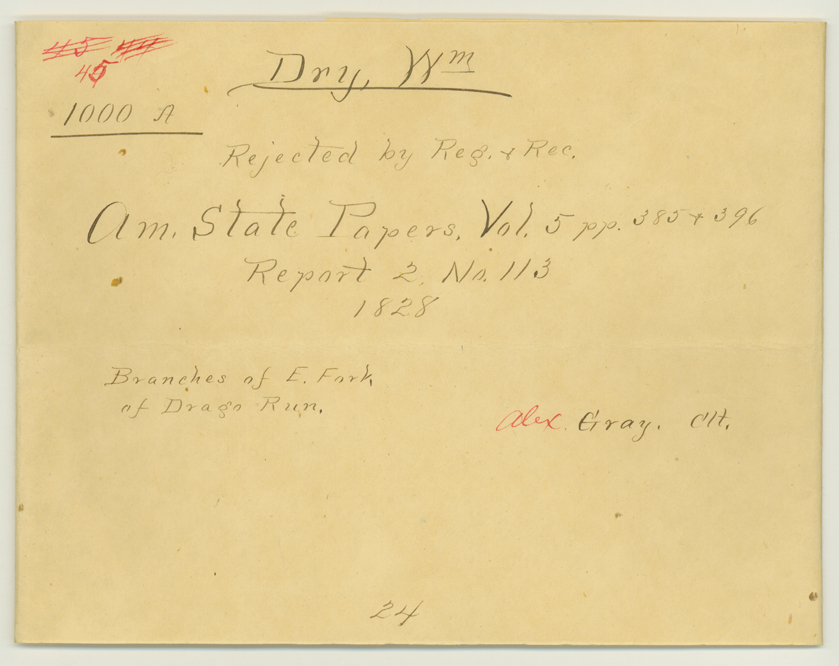 45 44
45
Dry, Wm
1000 A
Rejected by Reg. & Rec.
Am. State Papers, Vol. 5 pp. 385 & 396
Report 2, No. 113
1828
Branches of E. Fork
of Drago Run.
Alex. Gray. Clt.
24